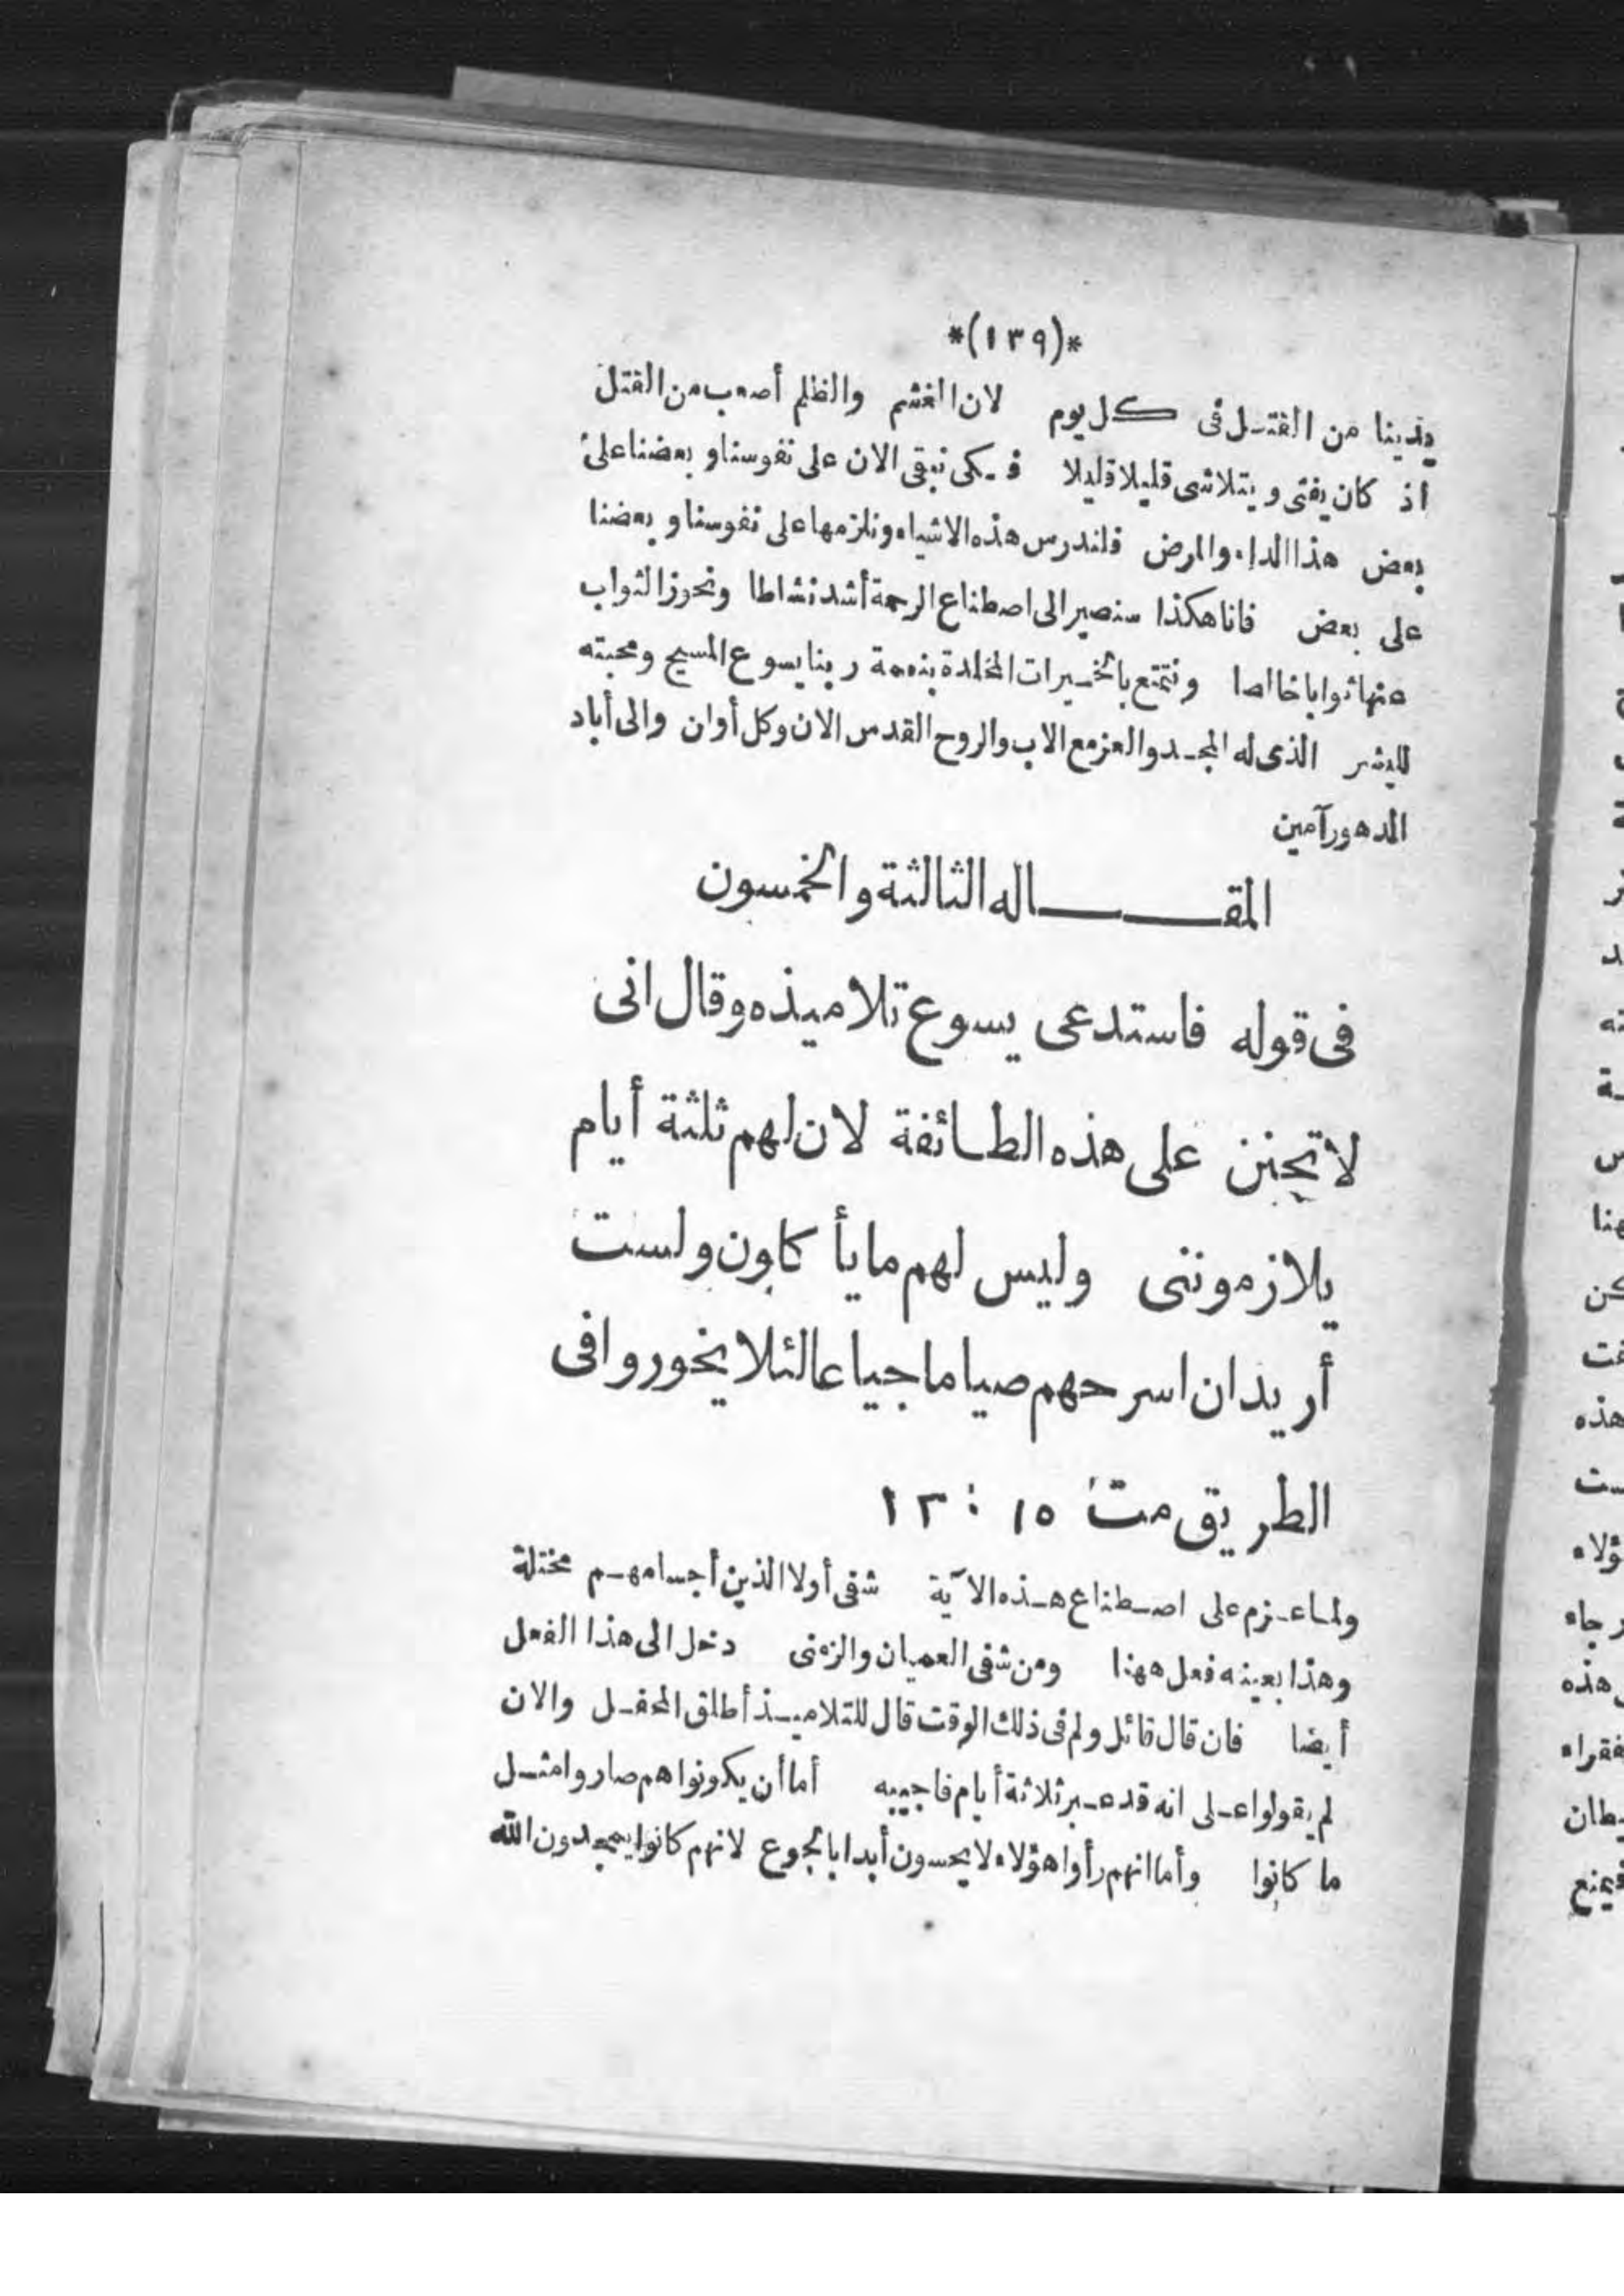 *(١٣٩)*
يدينا من القتل فى كل يوم لان الغشم والظلم أصعب من القتل
اذ كان يفنى ويتلاشى قليلا قليلا فيكى نبقى الان على نفوسنا وبعضنا على
بعض هذا الداء والمرض فلندرس هذه الاشياء ونلزمها على نفوسنا وبعضنا
على بعض فانا هكذا سنصير الى اصطناع الرحمة أشد نشاطا ونحوز الثواب
عنها ثوابا خالصا ونتمتع بالخيرات المخلدة بنعمة ربنا يسوع المسيح ومحبته
للبشر الذى له المجد والعز مع الاب والروح القدس الان وكل أوان والى أباد
الدهور آمين
المقاله الثالثة والخمسون
فى قوله فاستدعى يسوع تلاميذه وقال انى
لاتحنن على هذه الطائفة لان لهم ثلثة أيام
يلازموننى وليس لهم ما يأكلون ولست
أريد ان اسرحهم صياما جياعا لئلا يخوروا فى
الطريق مت ١٥ : ١٣
ولما عزم على اصطناع هذه الآية شفى أولا الذين أجسامهم مختلة
وهذا بعينه فعل ههنا ومن شفى العميان والزمنى دخل الى هذا الفعل
أيضا فان قال قائل ولم فى ذلك الوقت قال للتلاميذ أطلق المحفل والان
لم يقولوا على انه قد عبر ثلاثة أيام فاجيبه أما أن يكونوا هم صاروا امثل
ما كانوا وأما انهم رأوا هؤلاء لا يحسون أبدا بالجوع لانهم كانوا يمجدون الله